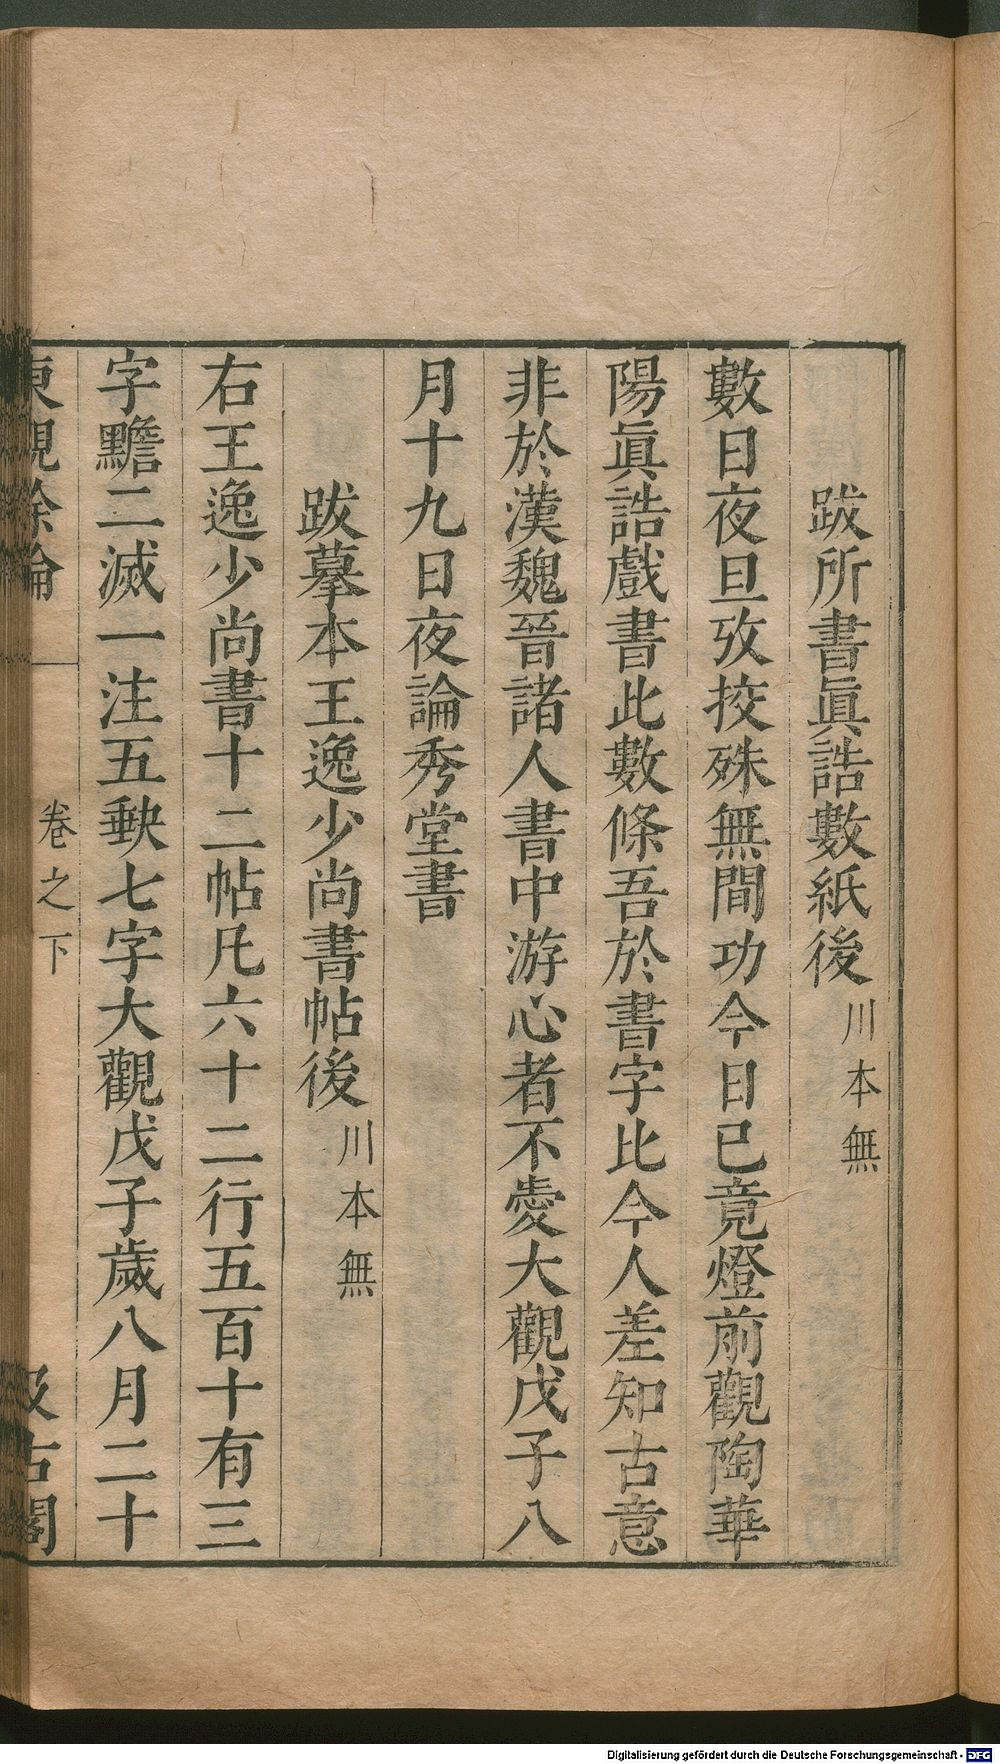 跋所書眞誥數紙後川本無
數日夜旦攷挍殊無間功今日已竟燈前觀陶華
陽眞誥戲書此數條吾於書字比今人差知古意
非於漢魏晉諸人書中游心者不愛大觀戊子八
月十九日夜論秀堂書
跋摹本王逸少尚書帖後川本無
右王逸少尚書十二帖凡六十二行五百十有三
字黵二滅一注五缺七字大觀戊子歲八月二十
東觀餘論 卷之下 汲古閣
Digitalisierung gefördert durch die Deutsche Forschungsgemeinschaft - DFG